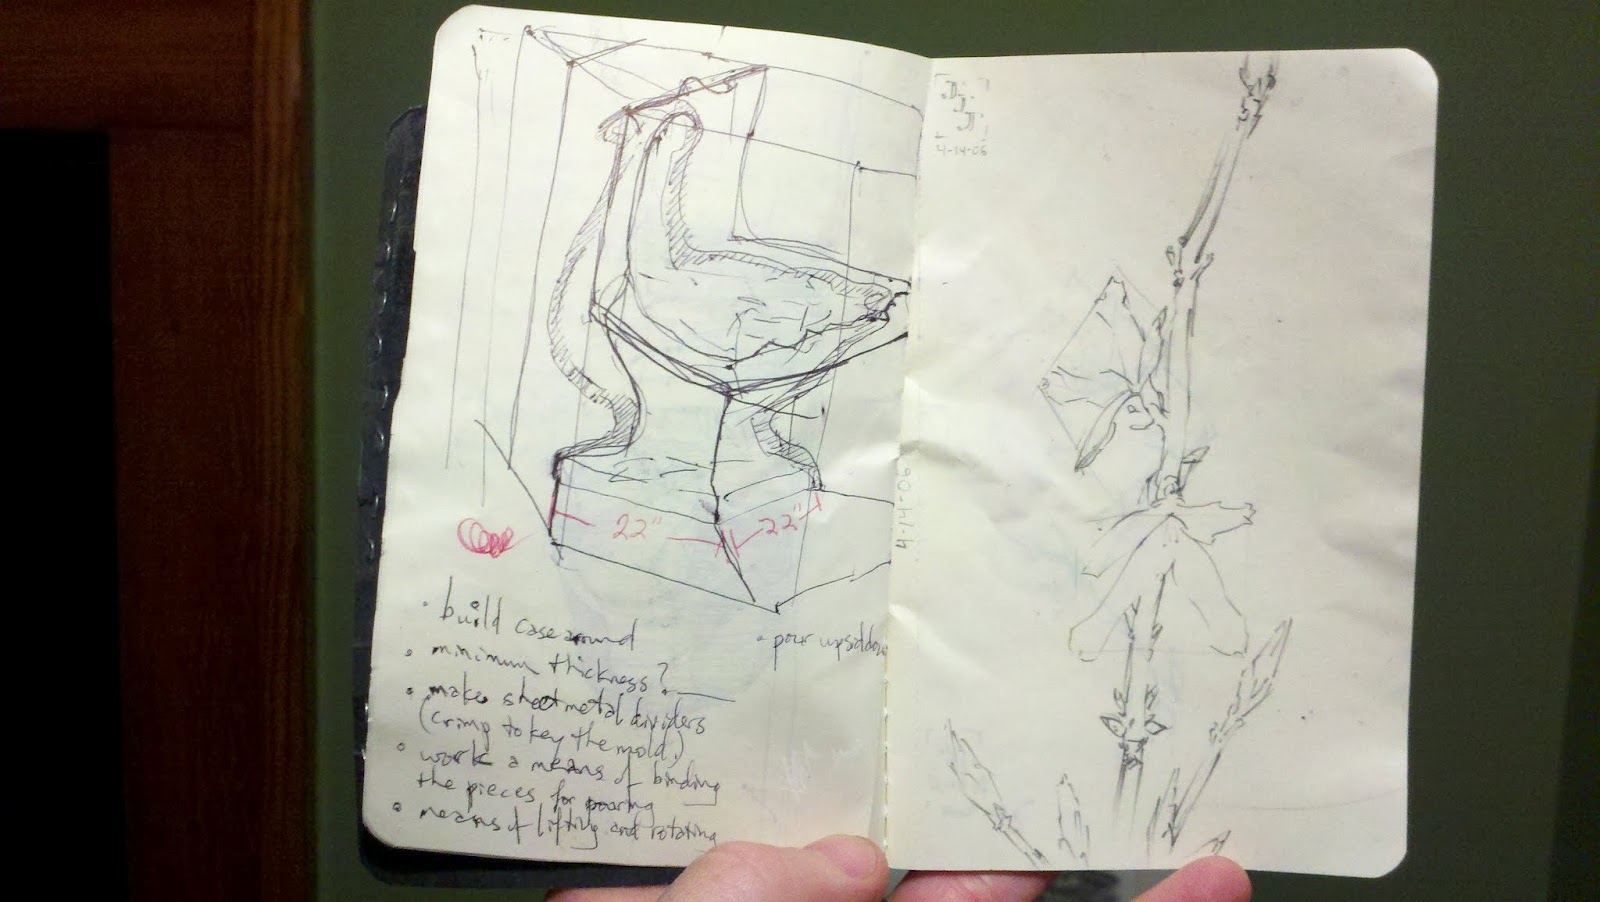 22"
22"
• build case around
• minimum thickness?
• make sheetmetal dividers
(crimp to key the mold)
• work a means of binding
the pieces for pouring
• means of lifting and rotating
• pour upsiddown
4-14-06
4-14-06